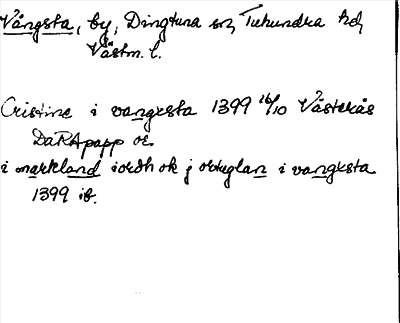 Vångsta, by, Dingtuna sn, Tuhundra hd,
Västm. l.
Cristine i vangxsta 1399 16/10 Västerås
DaRApapp or.
i markland iordh ok j örtuglan i vangxsta
1399 ib.